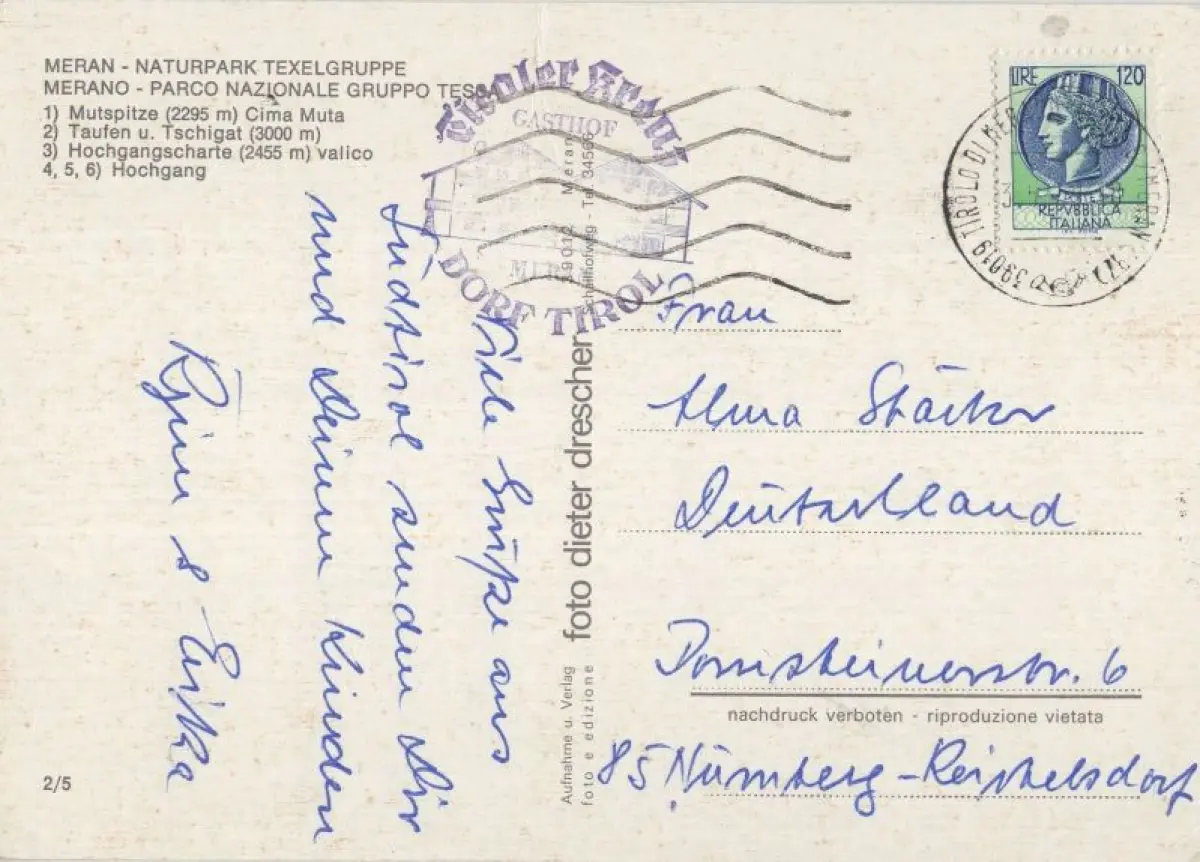 MERAN - NATURPARK TEXELGRUPPE
MERANO - PARCO NAZIONALE GRUPPO TESSA
1) Mutspitze (2295 m) Cima Muta
2) Taufen u. Tschigat (3000 m)
3) Hochgangscharte (2455 m) valico
4, 5, 6) Hochgang
Tiroler Kreuz
GASTHOF
DORF TIROL
LIRE 120
REPVBBLICA
ITALIANA
39019 TIROLO DI MERANO
Viele Grüße aus
Südtirol senden Dir
und Deinen Kindern
&
Erika
Aufnahme u. Verlag
foto e edizione
foto dieter drescher
Meran
Frau
Alma Stärker
Deutschland
6
nachdruck verboten - riproduzione vietata
85 Nürnberg-Reichelsdorf
2/5